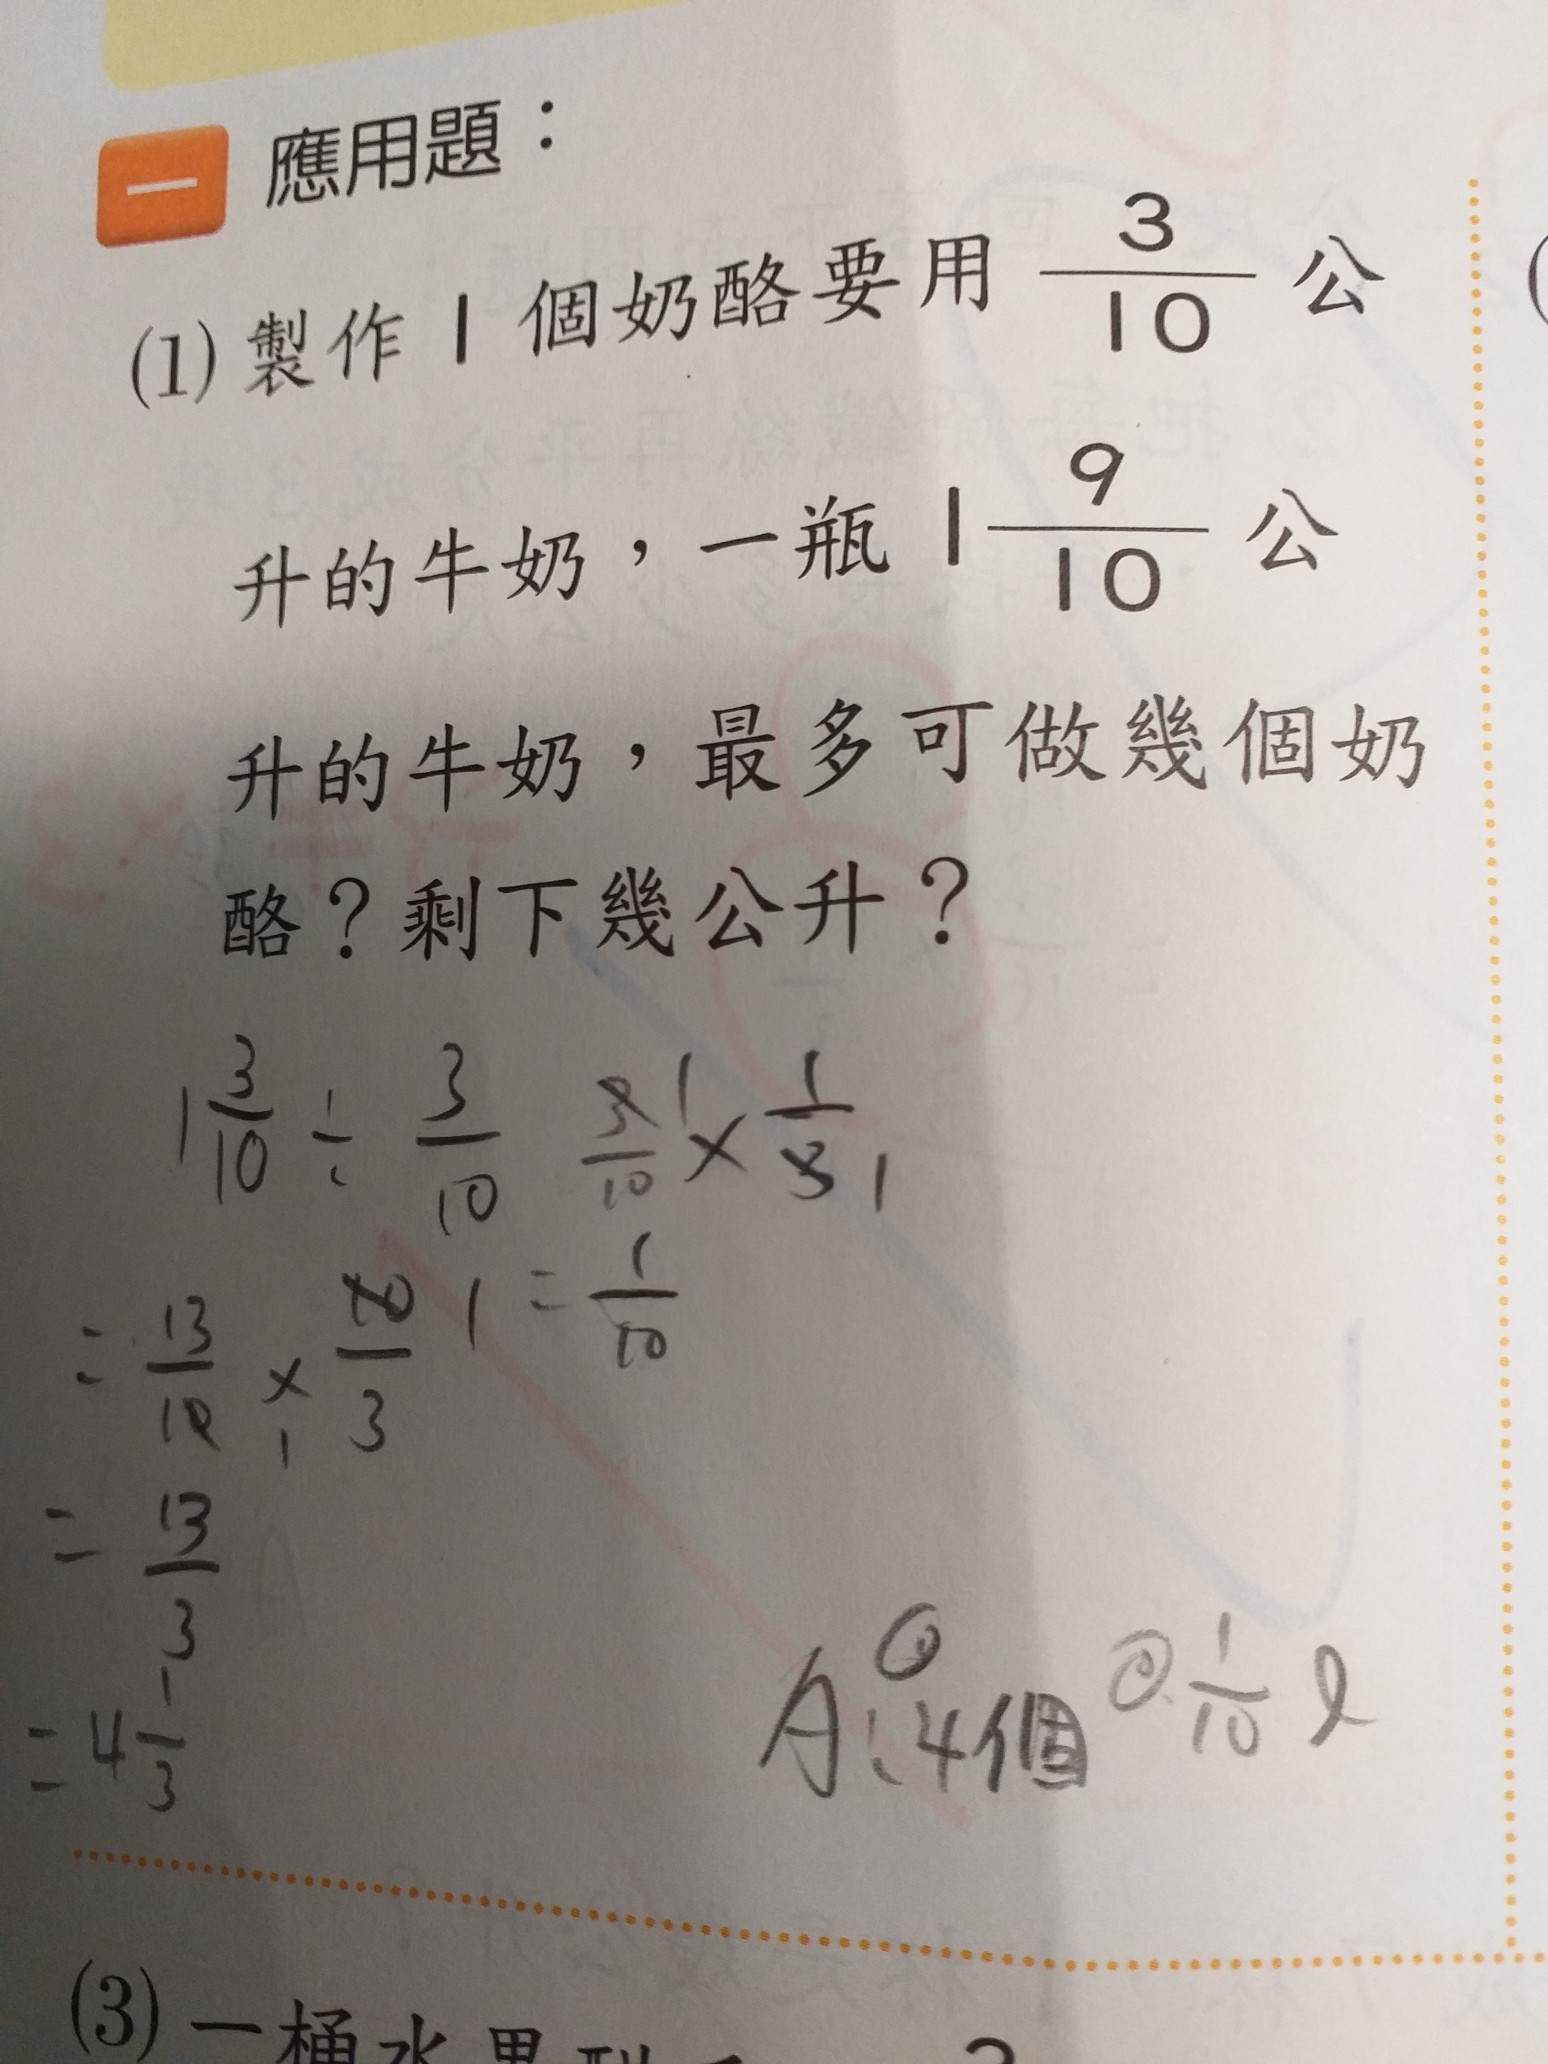 一 應用題：
(1) 製作 1 個奶酪要用 3/10 公
升的牛奶，一瓶 1 9/10 公
升的牛奶，最多可做幾個奶
酪？剩下幾公升？
1 3/10 ÷ 3/10
= 13/10 × 10/3
1 1
= 13/3
= 4 1/3
3/10 × 1/3
1 1
= 1/10
A: ① 4個 ② 1/10 l
(3) 一桶水果